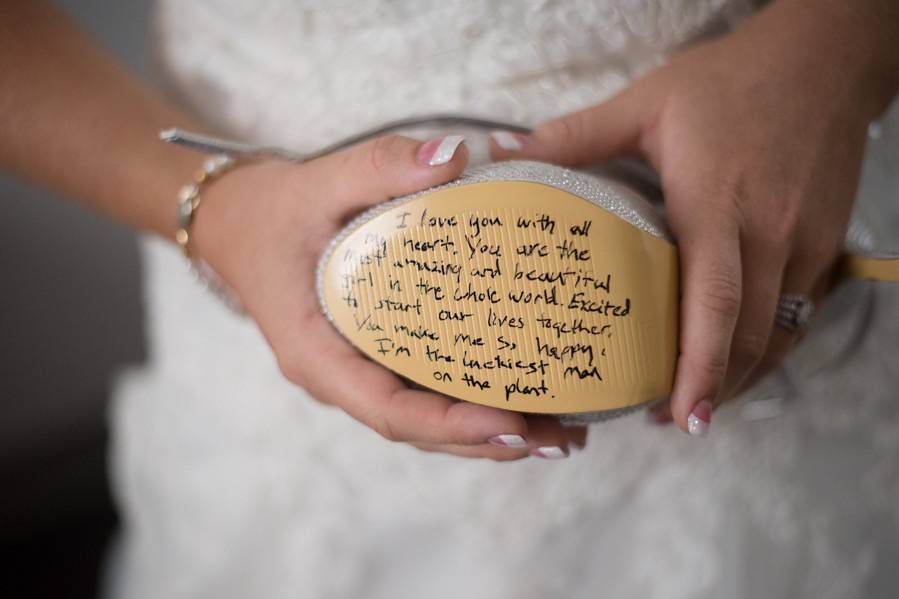 I love you with all
my heart. You are the
most amazing and beautiful
girl in the whole world. Excited
to start our lives together.
You make me so happy.
I'm the luckiest man
on the plant.